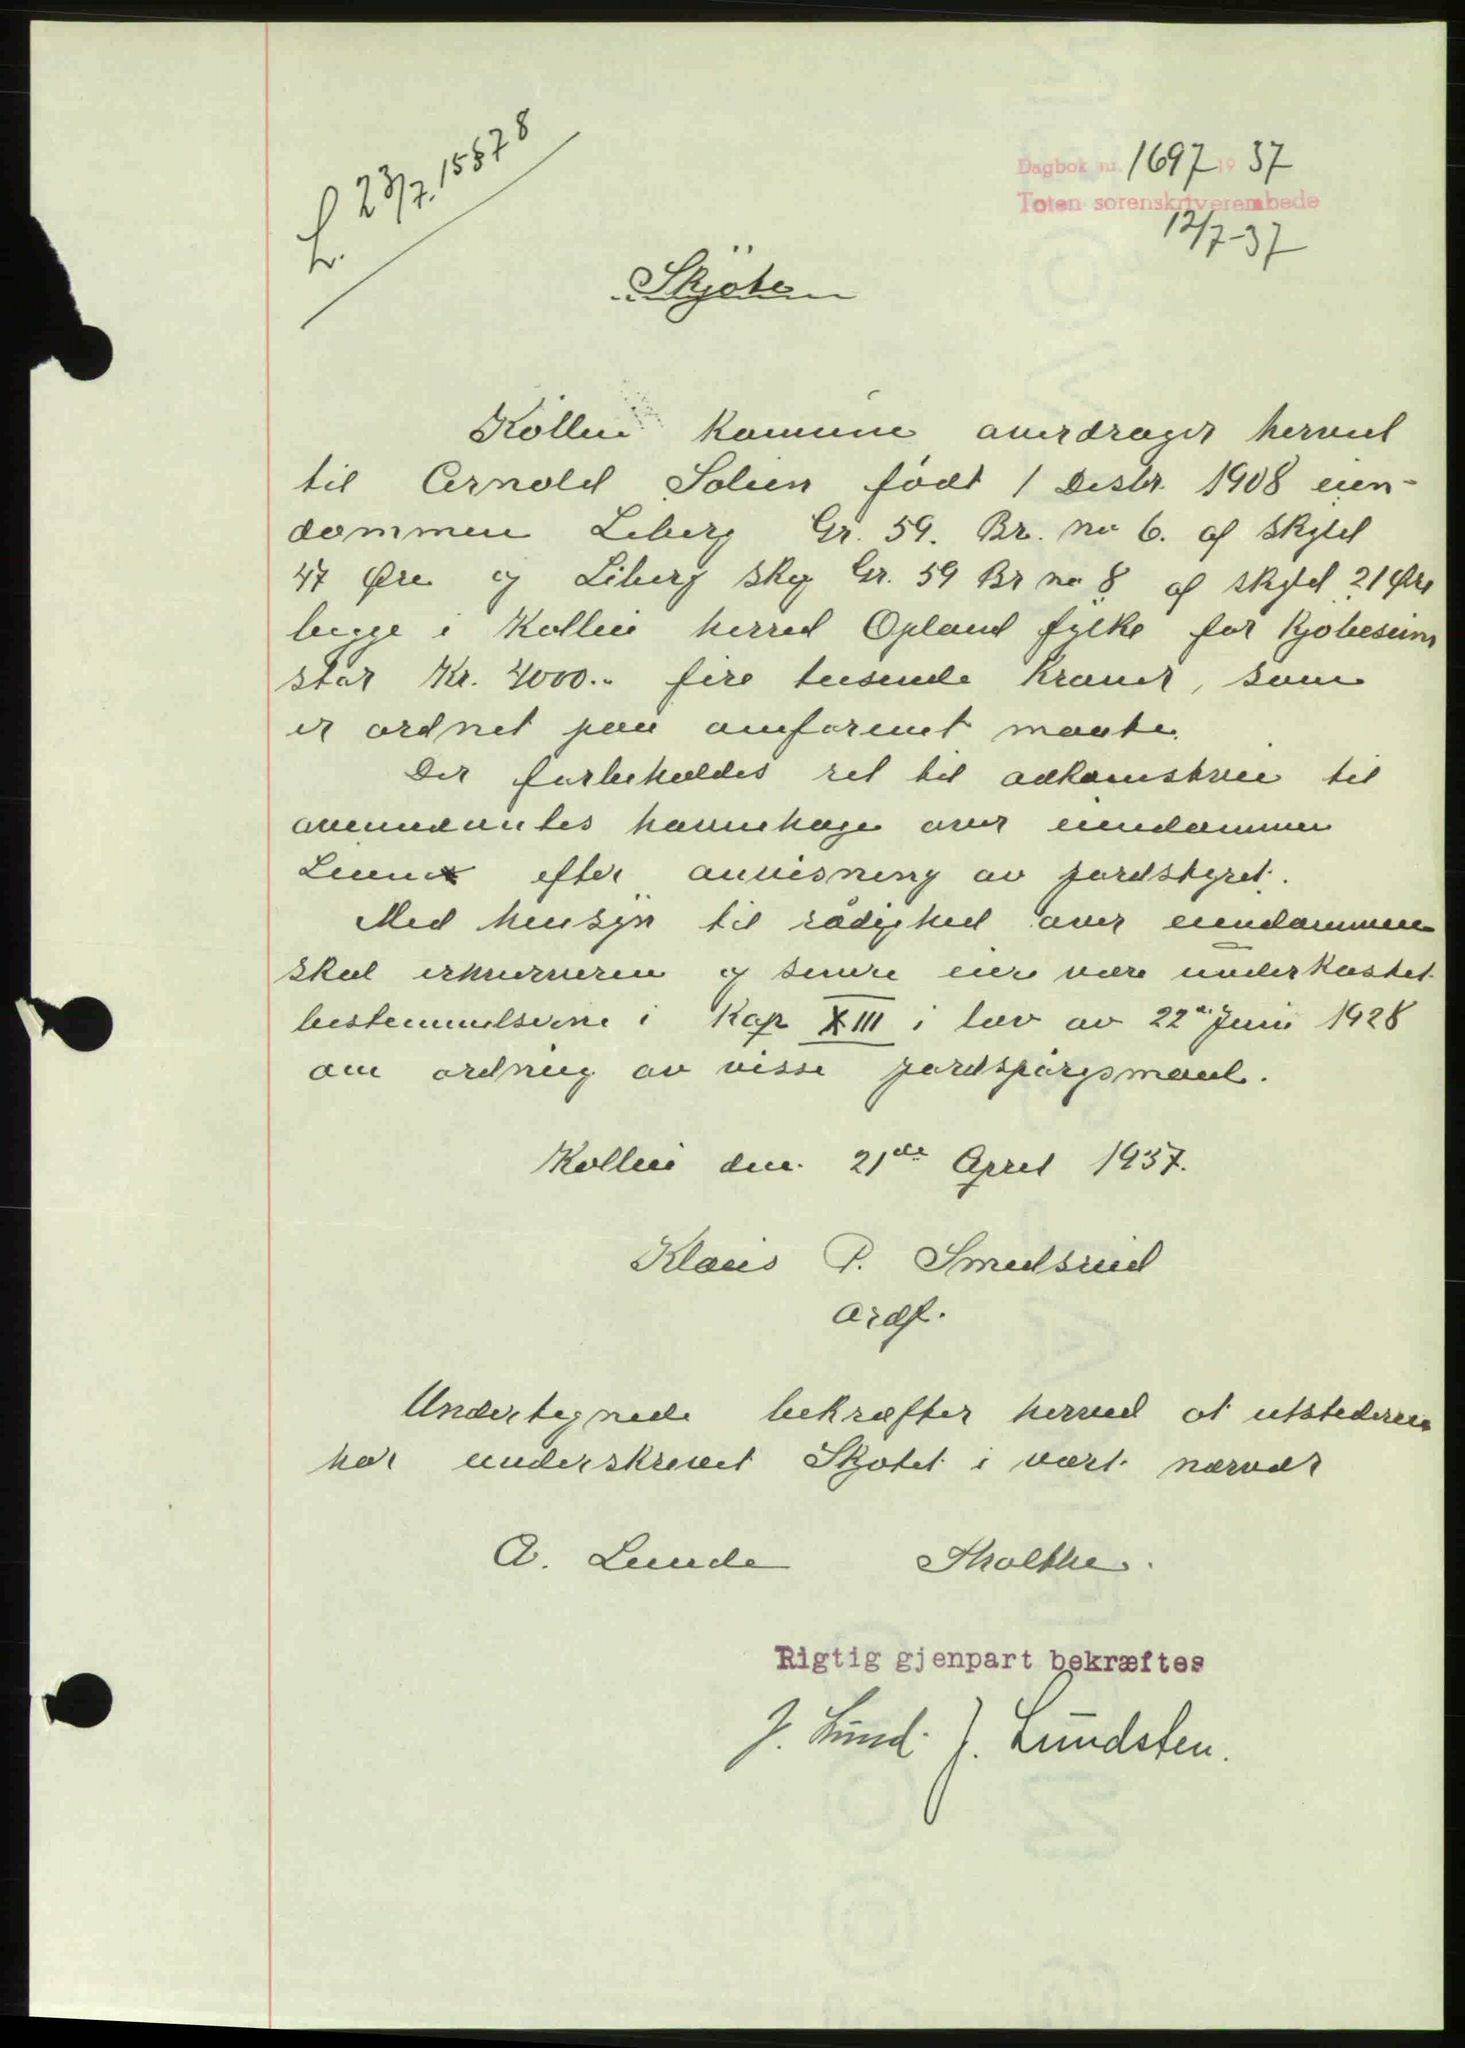 L. 23/7. 15578
Dagbok nr. 1697 19 37
Toten sorenskriverembede
12/7-37
Skjöte
Kolbu komune overdrager herved
til Arnold Solien født 1 Desbr. 1908 eien-
dommen Liberg Gr. 59. Br. no 6. af skyld
47 Øre og Liberg skog Gr. 59 Br no 8 af skyld 21 Øre
begge i Kolbu herred Opland fylke for kjøbesum
stor Kr. 4000.- fire tusende kroner, som
er ordnet paa omforenet maate.
Der forbeholdes ret til adkomstvei til
ovennevntes havnehage over eiendommen
efter anvisning av jordstyret.
Med hensyn til rådighed over eiendommen
skal erhververen og senere eier være underkastet
bestemmelserne i Kap XIII i lov av 22de Juni 1928
om ordning av visse jordspørgsmaal.
Kolbu den 21de April 1937.
Klaus P. Smedsrud
ordf.
Undertegnede bekræfter herved at utstederen
har underskrevet Skjøtet i vort nærvær
A. Lunde
Rigtig gjenpart bekræftes
J. Lund. J. Lundsten.